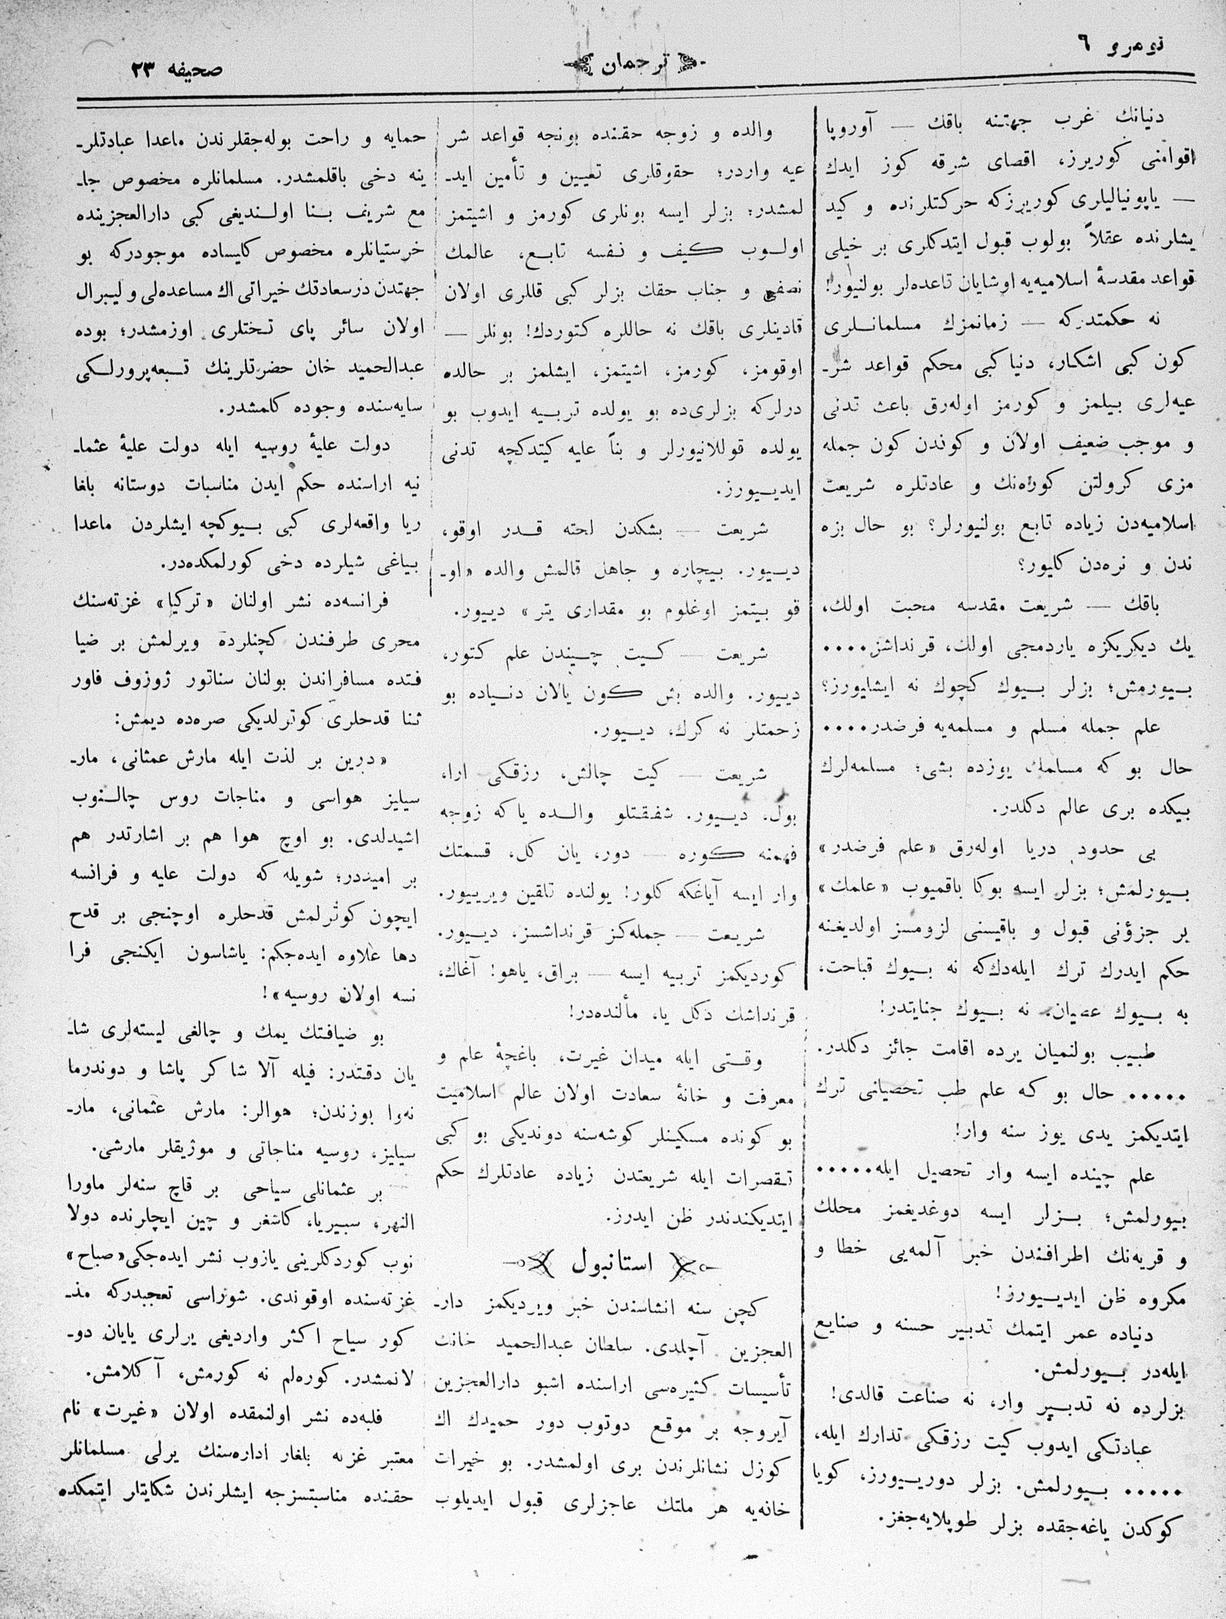 نومرو ٦
ترجمان
صحیفه ٢٣
دنیانك غرب جهتنه باقك — آوروپا
اقوامنی کوریرز، اقصای شرقه کوز ایدك
— یاپونیالیاری کوریرزکه حرکتلرنده و کید
یشلرنده عقلاً بولوب قبول ایتدکلری بر خیلی
قواعد مقدسهٔ اسلامیه‌یه اوشایان قاعده‌لر بولنیور!
نه حکمتدرکه — زمانمزك مسلمانلری
کون کبی اشکار، دنیا کبی محکم قواعد شرـ
عیه‌لری بیلمز و کورمز اوله‌رق باعث تدنی
و موجب ضعیف اولان و کوندن کون جمله
مزی کرولتن کوره‌نك و عادتلره شریعت
اسلامیه‌دن زیاده تابع بولنیورلر؟ بو حال بزه
ندن و نره‌دن کلیور؟
باقك — شریعت مقدسه محبت اولك،
یك دیکریکزه یاردمجی اولك، قرنداشز....
بیورمش؛ بزلر بیوك کچوك نه ایشلیورز؟
علم جمله مسلم و مسلمه‌یه فرضدر....
حال بو که مسلمك یوزده بشی؛ مسلمه‌لرك
بیکده بری عالم دکلدر.
بی حدود دریا اوله‌رق «علم فرضدر»
بیورلمش؛ بزلر ایسه بوکا باقمیوب «علمك»
بر جزؤنی قبول و باقیسنی لزومسز اولدیغنه
حکم ایدرك ترك ایله‌دك‌که نه بیوك قباحت،
به بیوك عصیان، نه بیوك جنایتدر!
طبیب بولنمیان یرده اقامت جائز دکلدر.
..... حال بو که علم طب تحصیلنی ترك
ایتدیکمز یدی یوز سنه وار!
علم چینده ایسه وار تحصیل ایله.....
بیورلمش؛ بزلر ایسه دوغدیغمز محلك
و قریه‌نك اطرافندن خبر آلمه‌یی خطا و
مکروه ظن ایدییورز!
دنیاده عمر ایتمك تدبیر حسنه و صنایع
ایله‌در بیورلمش.
بزلرده نه تدبیر وار، نه صناعت قالدی!
عبادتکی ایدوب کیت رزقکی تدارك ایله،
..... بیورلمش. بزلر دورییورز، کویا
کوکدن یاغه‌جقده بزلر طوپلایه‌جغز.
والده و زوجه حقنده بونجه قواعد شر
عیه واردر؛ حقوقلری تعیین و تأمین ایدـ
لمشدر؛ بزلر ایسه بونلری کورمز و اشیتمز
اولوب کیف و نفسه تابع، عالمك
نصفی و جناب حقك بزلر کبی قللری اولان
قادینلری باقك نه حاللره کتوردك! بونلر —
اوقومز، کورمز، اشیتمز، ایشلمز بر حالده
درلرکه بزلری‌ده بو یولده تربیه ایدوب بو
یولده قوللانیورلر و بناً علیه کیتدکچه تدنی
ایدییورز.
شریعت — بشکدن لحته قدر اوقو،
دییور. بیچاره و جاهل قالمش والده «اوـ
قو بیتمز اوغلوم بو مقداری یتر» دییور.
شریعت — کیت چیندن علم کتور،
دییور. والده بش کون یالان دنیاده بو
زحمتلر نه کرك، دییور.
شریعت — کیت چالش، رزقکی ارا،
بول، دییور. شفقتلو والده یاکه زوجه
فهمنه کوره — دور، یان کل، قسمتك
وار ایسه آیاغکه کلور! یولنده تلقین ویرییور.
شریعت — جمله‌کز قرنداشسز، دییور.
کوردیکمز تربیه ایسه — براق، یاهو! آغاك،
قرنداشك دکل یا، مألنده‌در!
وقتی ایله میدان غیرت، باغچهٔ علم و
معرفت و خانهٔ سعادت اولان عالم اسلامیت
بو کونده مسکینلر کوشه‌سنه دوندیکی بو کبی
تقصرات ایله شریعتدن زیاده عادتلرك حکم
ایتدیکندندر ظن ایدرز.
استانبول
کچن سنه انشاسندن خبر ویردیکمز دارـ
العجزین آچلدی. سلطان عبدالحمید خانك
تأسیسات کثیره‌سی اراسنده اشبو دارالعجزین
آیروجه بر موقع دوتوب دور حمیدك اك
کوزل نشانلرندن بری اولمشدر. بو خیرات
خانه‌یه هر ملتك عاجزلری قبول ایدیلوب
حمایه و راحت بوله‌جقلرندن ماعدا عبادتلرـ
ینه دخی باقلمشدر. مسلمانلره مخصوص جاـ
مع شریف بنا اولندیغی کبی دارالعجزینده
خرستیانلره مخصوص کلیساده موجودرکه بو
جهتدن درسعادتك خیراتی اك مساعده‌لی و لیبرال
اولان سائر پای تختلری اوزمشدر؛ بوده
عبدالحمید خان حضرتلرینك تبعه‌پرورلکی
سایه‌سنده وجوده کلمشدر.
دولت علیهٔ روسیه ایله دولت علیهٔ عثماـ
نیه اراسنده حکم ایدن مناسبات دوستانه بلغا
ریا واقعه‌لری کبی بیوکچه ایشلردن ماعدا
بیاغی شیلرده دخی کورلمکده‌در.
فرانسه‌ده نشر اولنان «ترکیا» غزته‌سنك
محرری طرفندن کچنلرده ویرلمش بر ضیا
فتده مسافراندن بولنان سناتور ژوزوف فاور
ثنا قدحلری کوترلدیکی صره‌ده دیمش:
«درین بر لذت ایله مارش عمثانی، مارـ
سیلیز هواسی و مناجات روس چالنوب
اشیدلدی. بو اوچ هوا هم بر اشارتدر هم
بر امیددر؛ شویله که دولت علیه و فرانسه
ایچون کوترلمش قدحلره اوچنجی بر قدح
دها علاوه ایده‌جکم: یاشاسون ایکنجی فرا
نسه اولان روسیه»!
بو ضیافتك یمك و چالغی لیسته‌لری شاـ
یان دقتدر: فیله آلا شاکر پاشا و دوندرما
نه‌وا بوزندن؛ هوالر: مارش عثمانی، مارـ
سیلیز، روسیه مناجاتی و موژیقلر مارشی.
بر عثمانلی سیاحی بر قاچ سنه‌لر ماورا
النهر، سبیریا، کاشغر و چین ایچلرنده دولا
نوب کوردکلرینی یازوب نشر ایده‌جکی «صباح»
غزته‌سنده اوقوندی. شوراسی تعجبدرکه مذـ
کور سیاح اکثر واردیغی یرلری یایان دوـ
لانمشدر. کوره‌لم نه کورمش، آکلامش.
فلبه‌ده نشر اولنمقده اولان «غیرت» نام
معتبر غزته بلغار اداره‌سنك یرلی مسلمانلر
حقنده مناسبتسزجه ایشلرندن شکایتلر ایتمکده